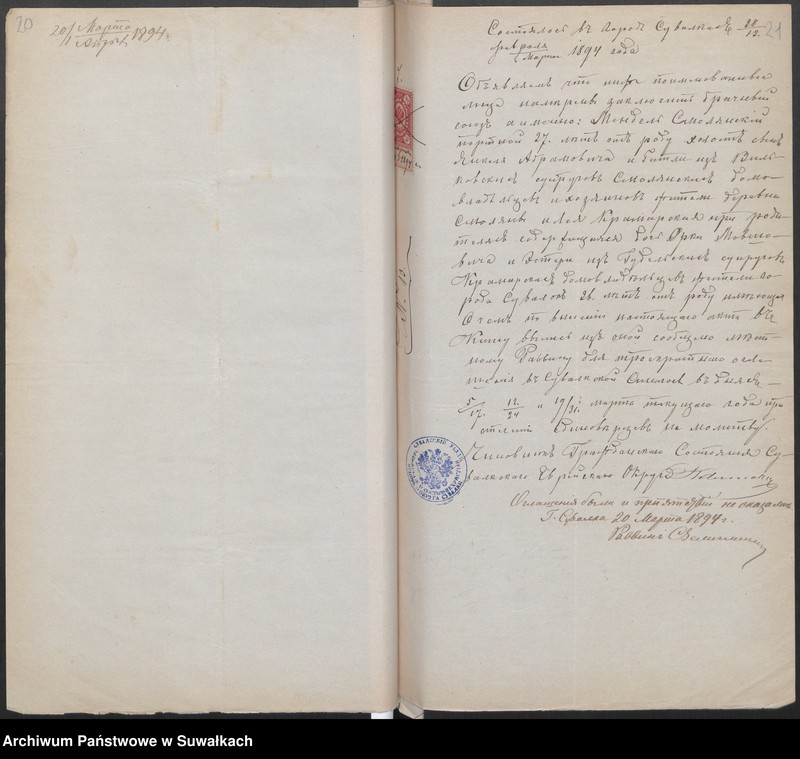 20
20/1 Марта/Апрѣля 1894 г.
21
Состоялось въ городѣ Сувалкахъ 28/12.
Февраля/Марта 1894 года
Объявляемъ что ниже поименованныя
лица намѣрены заключить брачный
союзъ а именно: Мендель Смолянскій
портной 27. лѣтъ отъ роду холостъ сынъ
Янкеля Абрамовича и изъ
супруговъ Смолянскихъ домо-
владѣльцевъ и хозяиновъ жители деревни
Смоляны и Лея Крамарская при роди-
теляхъ дочь Орки Мовшо-
вича и Эстеры изъ супруговъ
Крамарскихъ домовладѣльцевъ жители го-
рода Сувалокъ 26. лѣтъ отъ роду имѣющая
О чемъ по внесеніи настоящаго акта въ
Книгу выпись изъ оной сообщено мѣст-
ному Раввину для троекратнаго огла-
шенія въ Сувалкской Синагогѣ въ дняхъ
5/17. 12/24 и 19/31. марта текущаго года при
стеченіи единовѣрцевъ на молитву.
Чиновникъ Гражданскаго Состоянія Су-
валкскаго Еврейскаго Округа
Оглашенія были и препятствій не оказалось
Г. Сувалки 20 Марта 1894 г.
Раввинъ
Archiwum Państwowe w Suwałkach